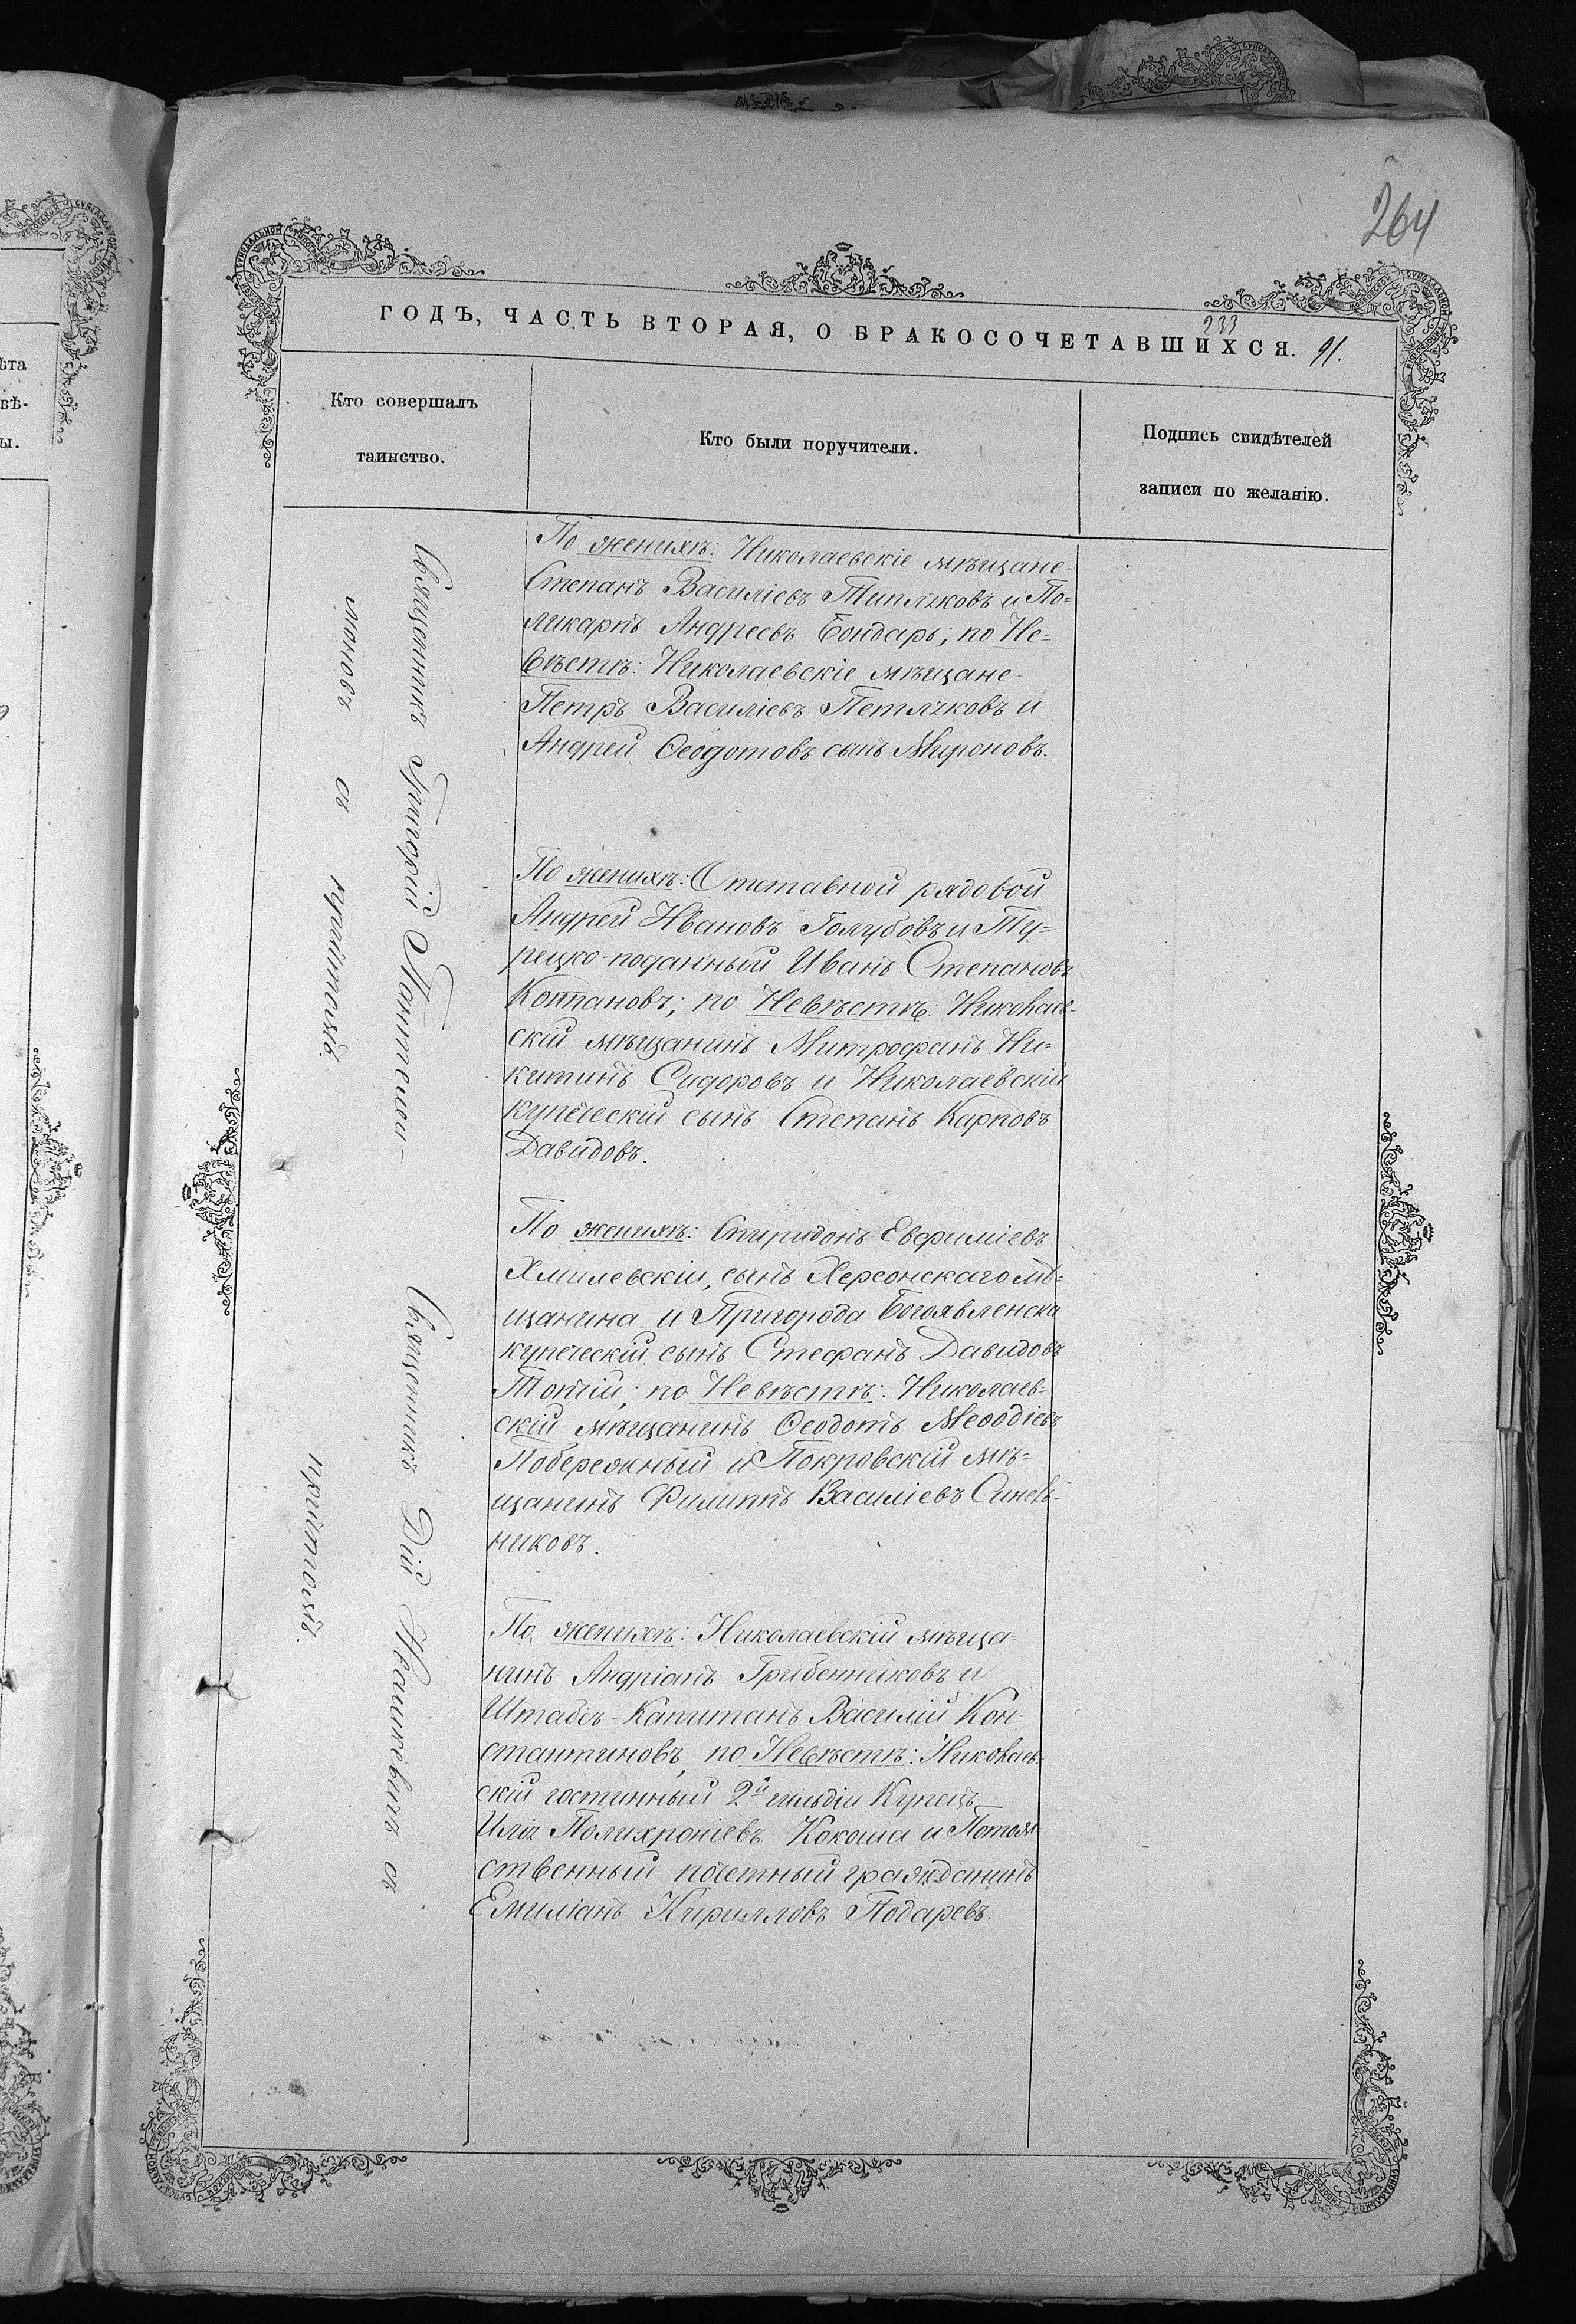 264
ГОДЪ, ЧАСТЬ ВТОРАЯ, О БРАКОСОЧЕТАВШИХСЯ.
233
91.
Кто совершалъ
таинство.
Кто были поручители.
Подпись свидѣтелей
записи по желанію.
Священникъ Григорій Пантелеи-
моновъ съ причтомъ.
Священникъ Дій Ивашкевичъ съ
причтомъ.
По женихѣ: Николаевскіе мѣщане-
Степанъ Василіевъ Типляковъ и По-
ликарпъ Андреевъ Бондарь; по Не-
вѣстѣ: Николаевскіе мѣщане-
Петръ Василіевъ Петляковъ и
Андрей Ѳеодотовъ сынъ Мироновъ.
По женихѣ: Отставной рядовой
Андрей Ивановъ Голубовъ и Ту-
рецко-поданный Иванъ Степановъ
Коппановъ; по Невѣстѣ: Николаев-
скій мѣщанинъ Митрофанъ Ни-
китинъ Сидоровъ и Николаевскій
купеческій сынъ Степанъ Карповъ
Давидовъ.
По женихѣ: Спиридонъ Евфиміевъ
Хмилевскій, сынъ Херсонскаго мѣ-
щанина и Пригорода Богоявленска
купеческій сынъ Стефанъ Давидовъ
по Невѣстѣ: Николаев-
скій мѣщанинъ Ѳеодотъ Меѳодіевъ
Побережный и Покровскій мѣ-
щанинъ Филиппъ Василіевъ Синель-
никовъ.
По женихѣ: Николаевскій мѣща-
нинъ Андріанъ Грибенниковъ и
Штабсъ-Капитанъ Василій Кон-
стантиновъ, по Невѣстѣ: Николаев-
скій гостинный 2й гильдіи Купецъ
Илія Полихроніевъ Кокоша и Потом-
ственный почетный гражданинъ
Емиліанъ Кирилловъ Подаревъ.
ѣта
вѣ-
ы.